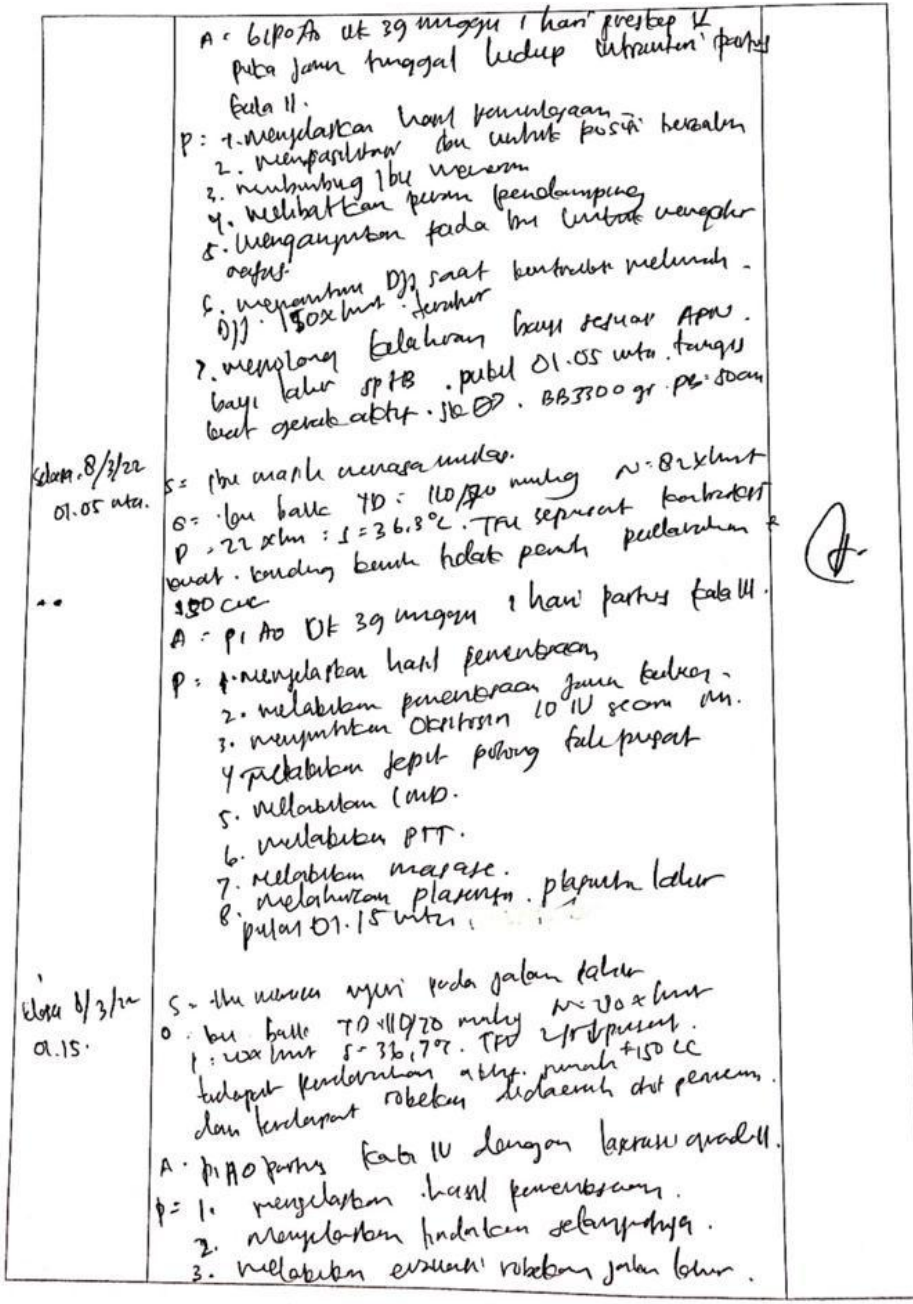 A = G1P0A0 UK 39 minggu 1 hari preskep U
puka janin tunggal hidup intrauteri partus
kala II.
P : 1. menjelaskan hasil pemeriksaan
2. menfasilitasi ibu untuk posisi bersalin
3. membimbing ibu meneran
4. melibatkan peran pendamping
5. Menganjurkan pada ibu untuk mengatur
nafas.
6. memantau DJJ saat kontraksi melemah.
DJJ : 150x/mnt teratur
7. menolong kelahiran bayi sesuai APN.
bayi lahir sptB. pukul 01.05 wita. tangis
kuat gerak aktif. JK BB3300 gr. PB: 50cm
Selasa, 8/3/22
01.05 wita.
S = Ibu masih merasa mulas.
O = Ibu baik TD : 110/70 mmHg N: 82x/mnt
P : 22 x/mn : S = 36,3°C. TFU sepusat kontraksi
kuat. kandung kemih tidak penuh perdarahan ±
150 cc
A = P1 A0 UK 39 minggu 1 hari partus kala III.
P : 1. menjelaskan hasil pemeriksaan
2. melakukan pemeriksaan janin kedua.
3. menyuntikan Oksitosin 10 IU secara IM.
4 Melakukan jepit potong tali pusat
5. Melakukan IMD.
6. melakukan PTT.
7. Melakukan masase.
8. Melahirkan plasenta. plasenta lahir
pukul 01.15 wita.
Selasa 8/3/22
01.15.
S = Ibu merasa nyeri pada jalan lahir
O : Ibu baik TD = 110/70 mmHg N: 80 x/mnt
P : 20x/mnt S = 36,7°C. TFU 2 jr ↓ pusat.
terdapat perdarahan aktif. jumlah ±150 CC
dan terdapat robekan didaerah otot perineum.
A . P1A0 partus kala IV dengan laserasi grade II.
P = 1. menjelaskan hasil pemeriksaan.
2. Menjelaskan tindakan selanjutnya.
3. Melakukan evaluasi robekan jalan lahir.